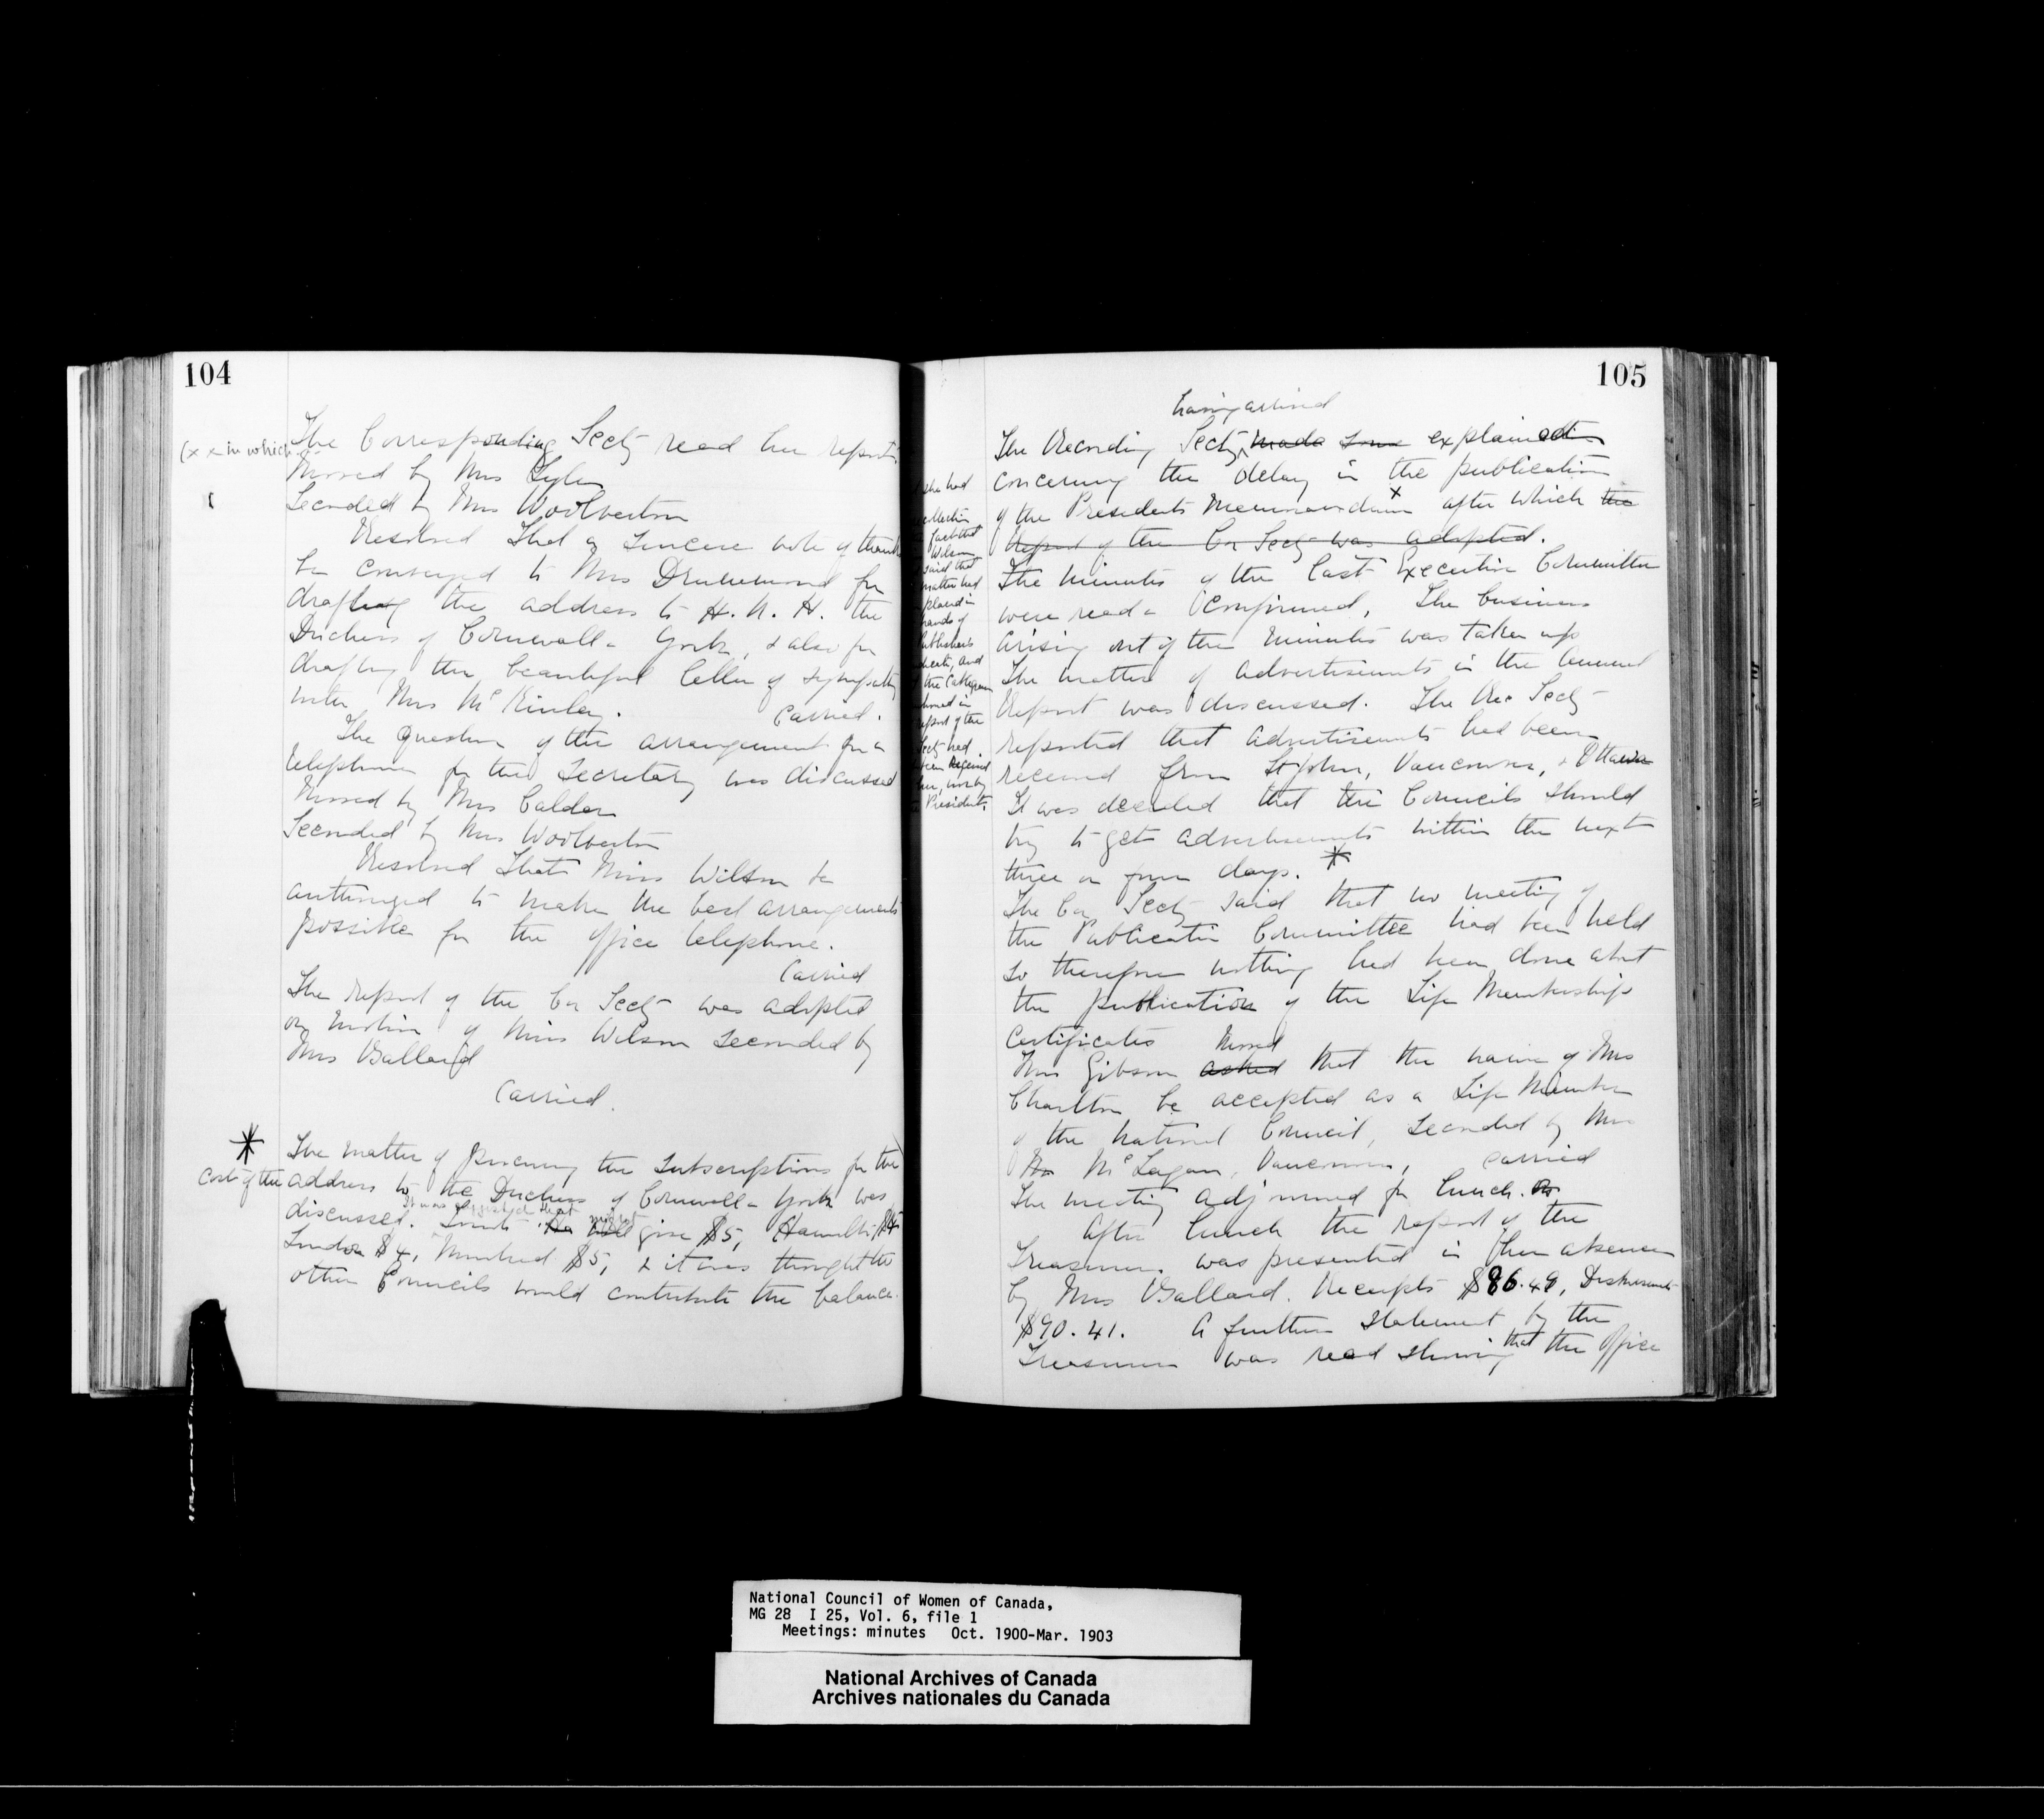 104
The Corresponding Secty read her report
(x x in which
Moved by Mrs Tyler
Seconded by Mrs Woolverton
Resolved That a sincere vote of thanks
be conveyed to Mrs Drummond for
drafting the address to H. R. H. the
Duchess of Cornwall & York, & also for
drafting the beautiful letter of sympathy
Mrs McKinley. Carried.
The question of the arrangement for a
telephone for the Secretary was discussed
Moved by Mrs Calder
Seconded by Mrs Woolverton
Resolved That Miss Wilson be
authorized to make the best arrangements
possible for the office telephone.
Carried
The report of the Cor Secty was adopted
on motion of Miss Wilson seconded by
Mrs Ballard
Carried.
* The matter of procuring the subscriptions for the
cost of the address to the Duchess of Cornwall & York was
It was that might
discussed. give $5, Hamilton $5
London $4, Montreal $5, & it was thought the
other Councils would contribute the balance.
105
having arrived
The Recording Secty made some explained
concerning the delay in the publication
of the Presidents Memorandum x after which the
report of the Cor Secty was adopted.
The minutes of the last Executive Committee
were read & confirmed, The business
arising out of the minutes was taken up
The matter of advertisements in the Annual
Report was discussed. The Rec Secty
reported that advertisements had been
received from St John, Vancouver, & Ottawa
It was decided that the Councils should
try to get advertisements within the next
three or four days. *
The Cor Secty said that no meeting of
the Publication Committee had been held
so therefore nothing had been done about
the publication of the Life Membership
Certificates
Moved
Mrs Gibson asked that the name of Mrs
Charlton be accepted as a Life Member
of the National Council, seconded by Mrs
McLagan, Vancouver, carried
The meeting adjourned for lunch.
After lunch the report of the
Treasurer was presented in her absence
by Mrs Ballard. Receipts $86.49, Disbursements
$90.41. A further statement by the
Treasurer was read showing that the Office
she had
fact that
Wilson
said that
matter had
placed in
hands of
Publishers
and
the
report of the
Secty had
been Received
President.
National Council of Women of Canada,
MG 28 I 25, Vol. 6, file 1
Meetings: minutes Oct. 1900-Mar. 1903
National Archives of Canada
Archives nationales du Canada